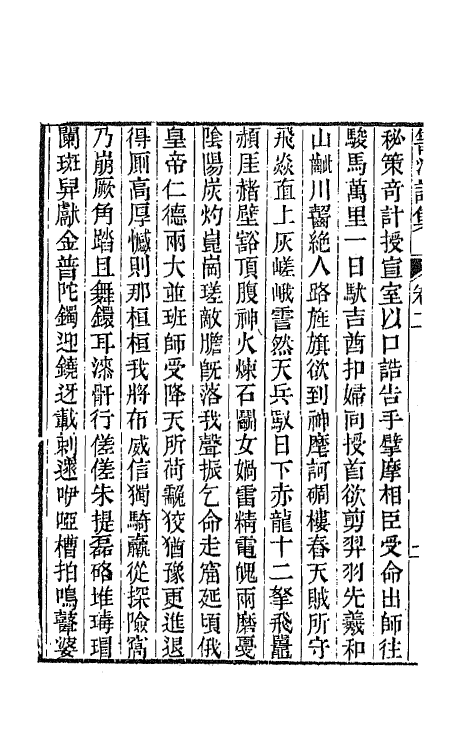 秘策奇計授宣室以口誥告手擘摩相臣受命出師往
駿馬萬里一日馱吉酋扣婦同授首欲剪羿羽先羲和
山巇川齾絶人路旌旗欲到神麾訶碉樓舂天賊所守
飛焱直上灰嵯峨霅然天兵馭日下赤龍十二拏飛鼉
頳厓赭壁豁頂腹神火煉石鬭女媧雷精電魄兩磨戛
陰陽炭灼崑崗瑳敵膽既落我聲振乞命走窟延頃俄
皇帝仁德兩大並班師受降天所荷覶狡猶豫更進退
得厠高厚憾則那桓桓我將布威信獨騎羸從探險窩
乃崩厥角踏且舞鐶耳漆骭行傞傞朱提磊硌堆璹瑁
闌斑舁獻金普陀鐲迎鐃迓載刺邏咿啞槽拍鳴鼙婆
卷二